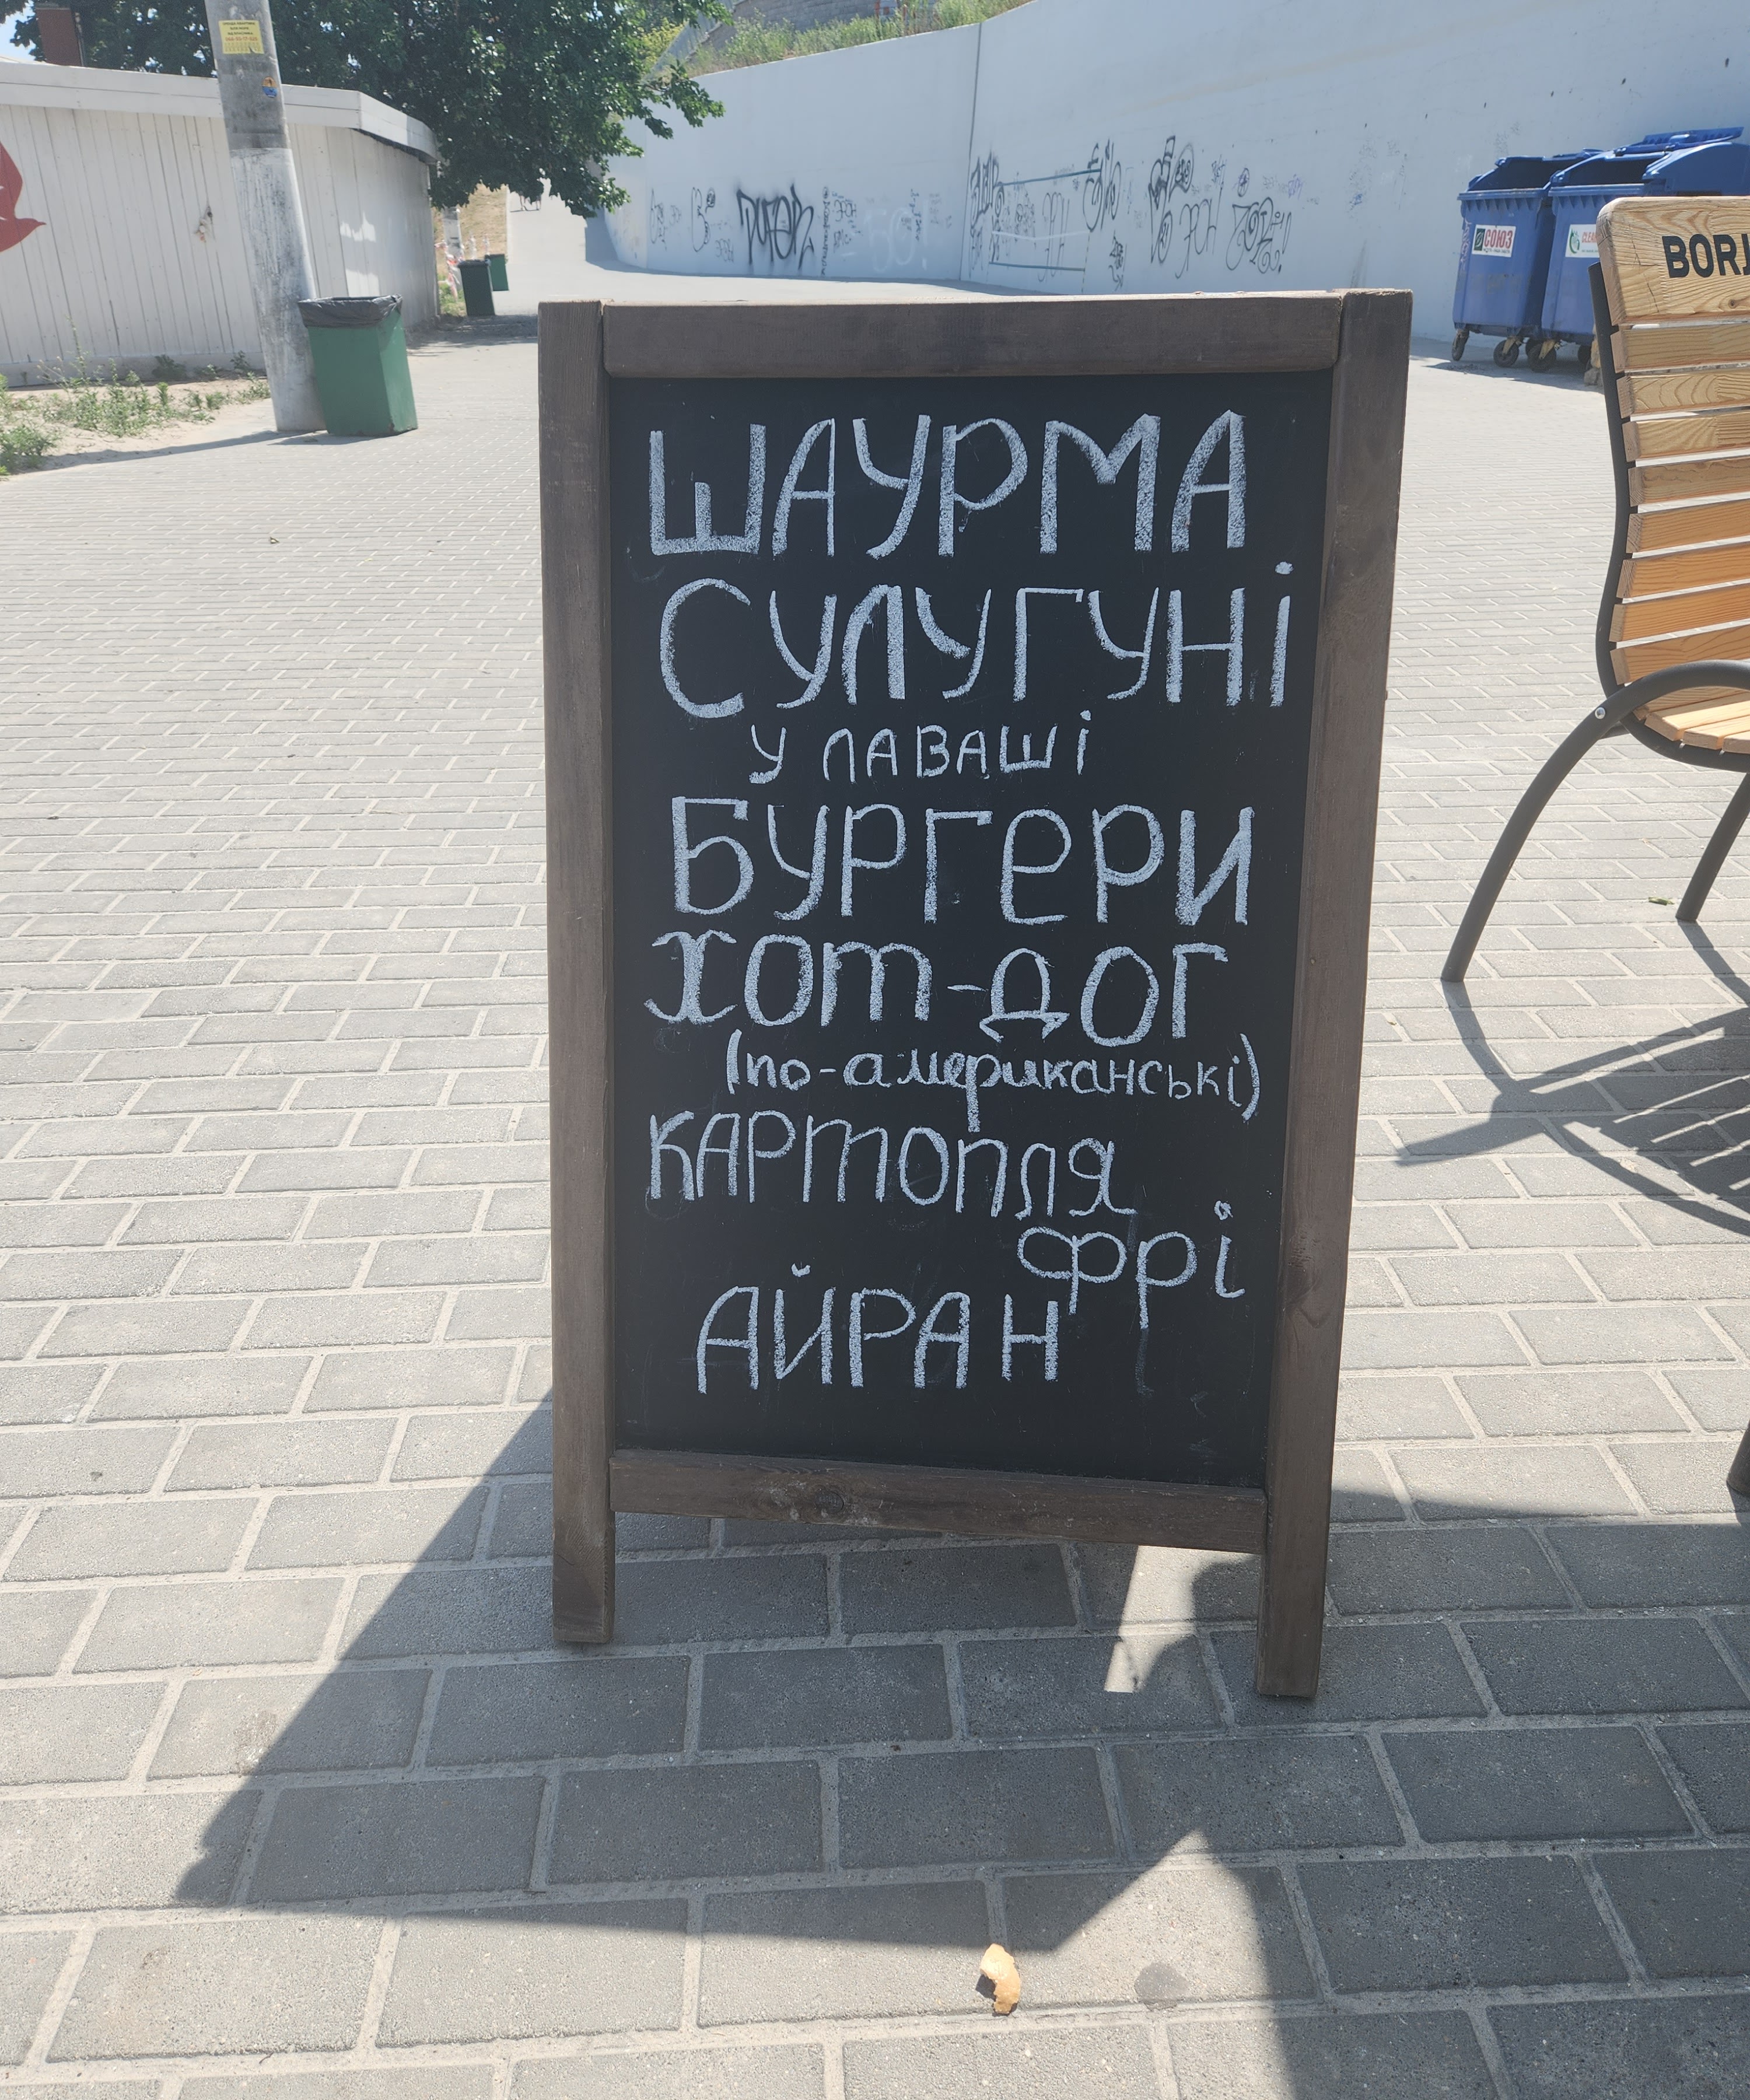 ШАУРМА
СУЛУГУНі
У ЛАВАШі
БУРГЕРИ
ХОТ-ДОГ
(по-американські)
КАРТОПЛЯ
ФРі
АЙРАН
СОЮЗ